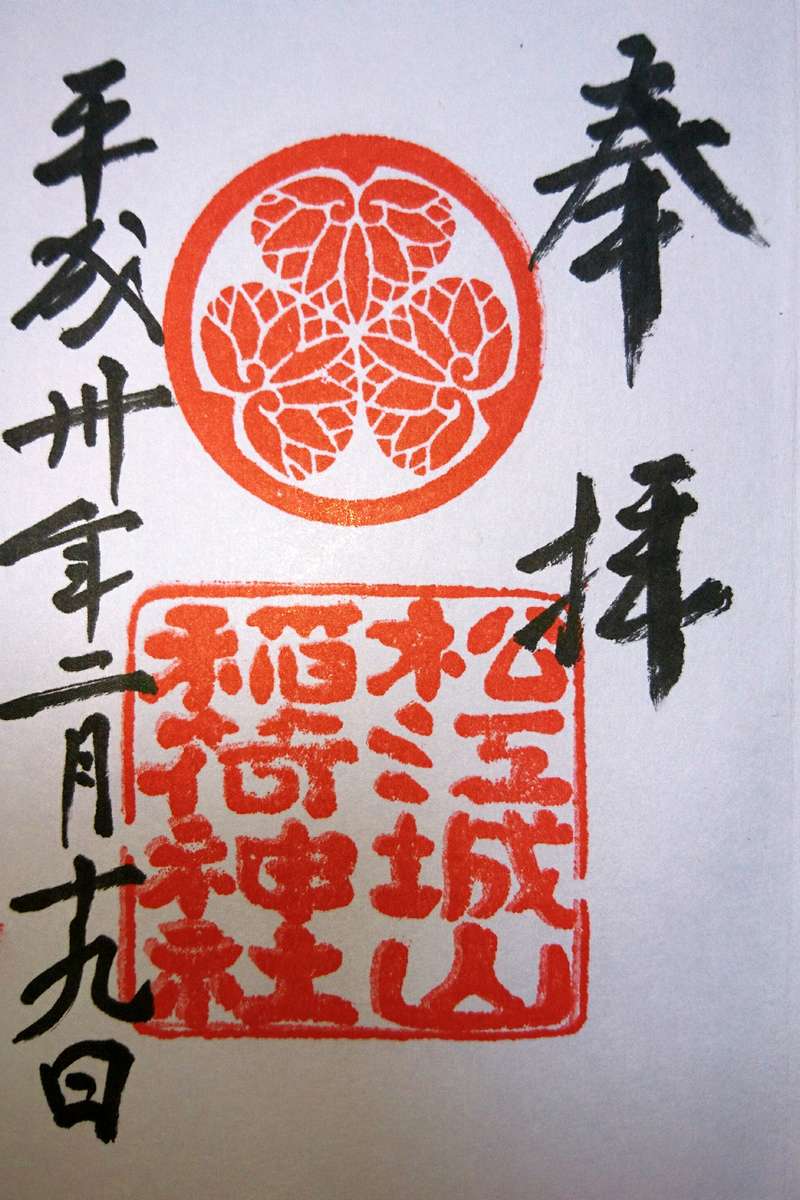 奉拝
松江城山
稲荷神社
平成卅年二月十九日